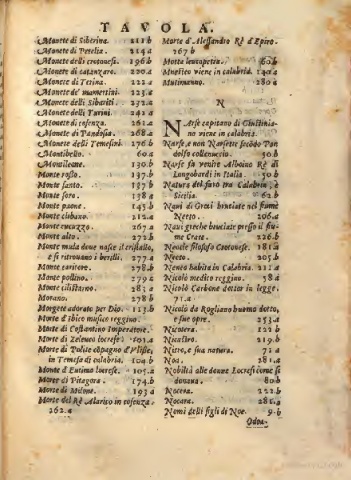 TAVOLA.
Monete di Siberina. 211 b
Monete di Petelia. 214 a
Monete delli crotonesi. 196 b
Monete di catanzaro. 200 a
Monete di Terina. 222 a
Monete de' mamertini. 123 a
Monete delli Sibariti 232 a
Monete delli Turini. 242 a
Monete di cosenza. 261 a
Monete di Pandosia. 268 a
Monete delli Temesini. 176 b
Montibello. 60 a
Monileone. 130 b
Monte rosso. 137 b
Monte santo. 137 b
Monte soro. 138 a
Monte paone. 145 b
Monte clibano. 212 a
Monte cucuzzo. 267 a
Monte alto. 272 b
Monte mula doue nasce il cristallo,
e si ritrouano i berilli. 277 a
Monte caritore. 278 b
Monte pollino. 279 a
Monte cilistarno. 283 a
Morano. 278 b
Morgete adorato per Dio. 113 b
Morte d'ibico musico reggino.
Morte di Costantino Imperatore.
Morte di Zeleuco locrese 101 a
Morte di Polite cōpagno d'Vlisse,
in Temesa di calabria. 104 b
Morte d'Eutimo locrese. 105 a
Morte di Pitagora. 174 b
Morte di Milone. 193 a
Morte del Rè Alarico in cosenza
262 a
Morte d'Alessandro Rè d'Epiro.
267 b
Motta leucopetra. 60 b
Mustico viene in calabria. 140 a
Mutimanno. 280 a
N
NArse capitano di Giustinia-
no viene in calabria.
Narse, e non Narsete secōdo Pan
dolfo collenuccio. 50 b
Narse fa venire Alboino Rè di
Longobardi in Italia. 50 b
Natura del faro tra Calabria, e
Sicilia. 62 b
Naui di Greci bruciate nel fiume
Neeto. 206 a
Naui greche bruciate presso il fiu-
me Crate. 226 b
Neocle filosofo Crotonese. 181 a
Neeto. 205 b
Neeto habita in Calabria. 211 a
Nicolò medico reggino. 78 d
Nicolò Carbone dottor in legge,
71. a
Nicolò da Rogliano huomo dotto,
e sue opre. 253 a
Nicotera. 122 b
Nicastro. 219 b
Nitro, e sua natura. 71 a
Noa. 281 a
Nobiltà alle donne Locresi come si
donaua. 80 b
Nocera. 222 b
Nocara. 281 a
Nomi delli figli di Noe. 9 b
Odoa-